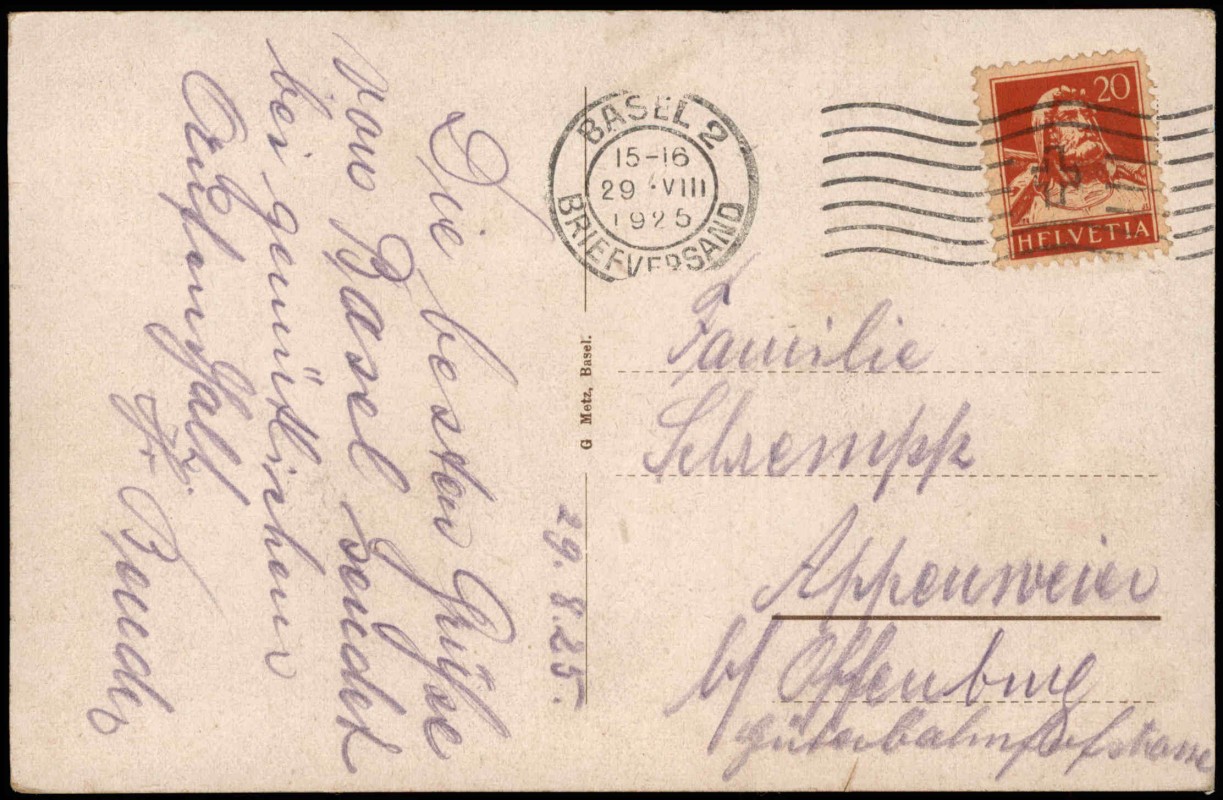 29.8.25.
Die besten Grüße
von Basel sendet
bei gemütlichem
Aufenthalt.
Fr
BASEL 2
15-16
29 VIII
1925
BRIEFVERSAND
20
HELVETIA
G Metz, Basel.
Familie
Schrempp
Appenweier
b/ Offenburg
Güterbahnhofstrasse